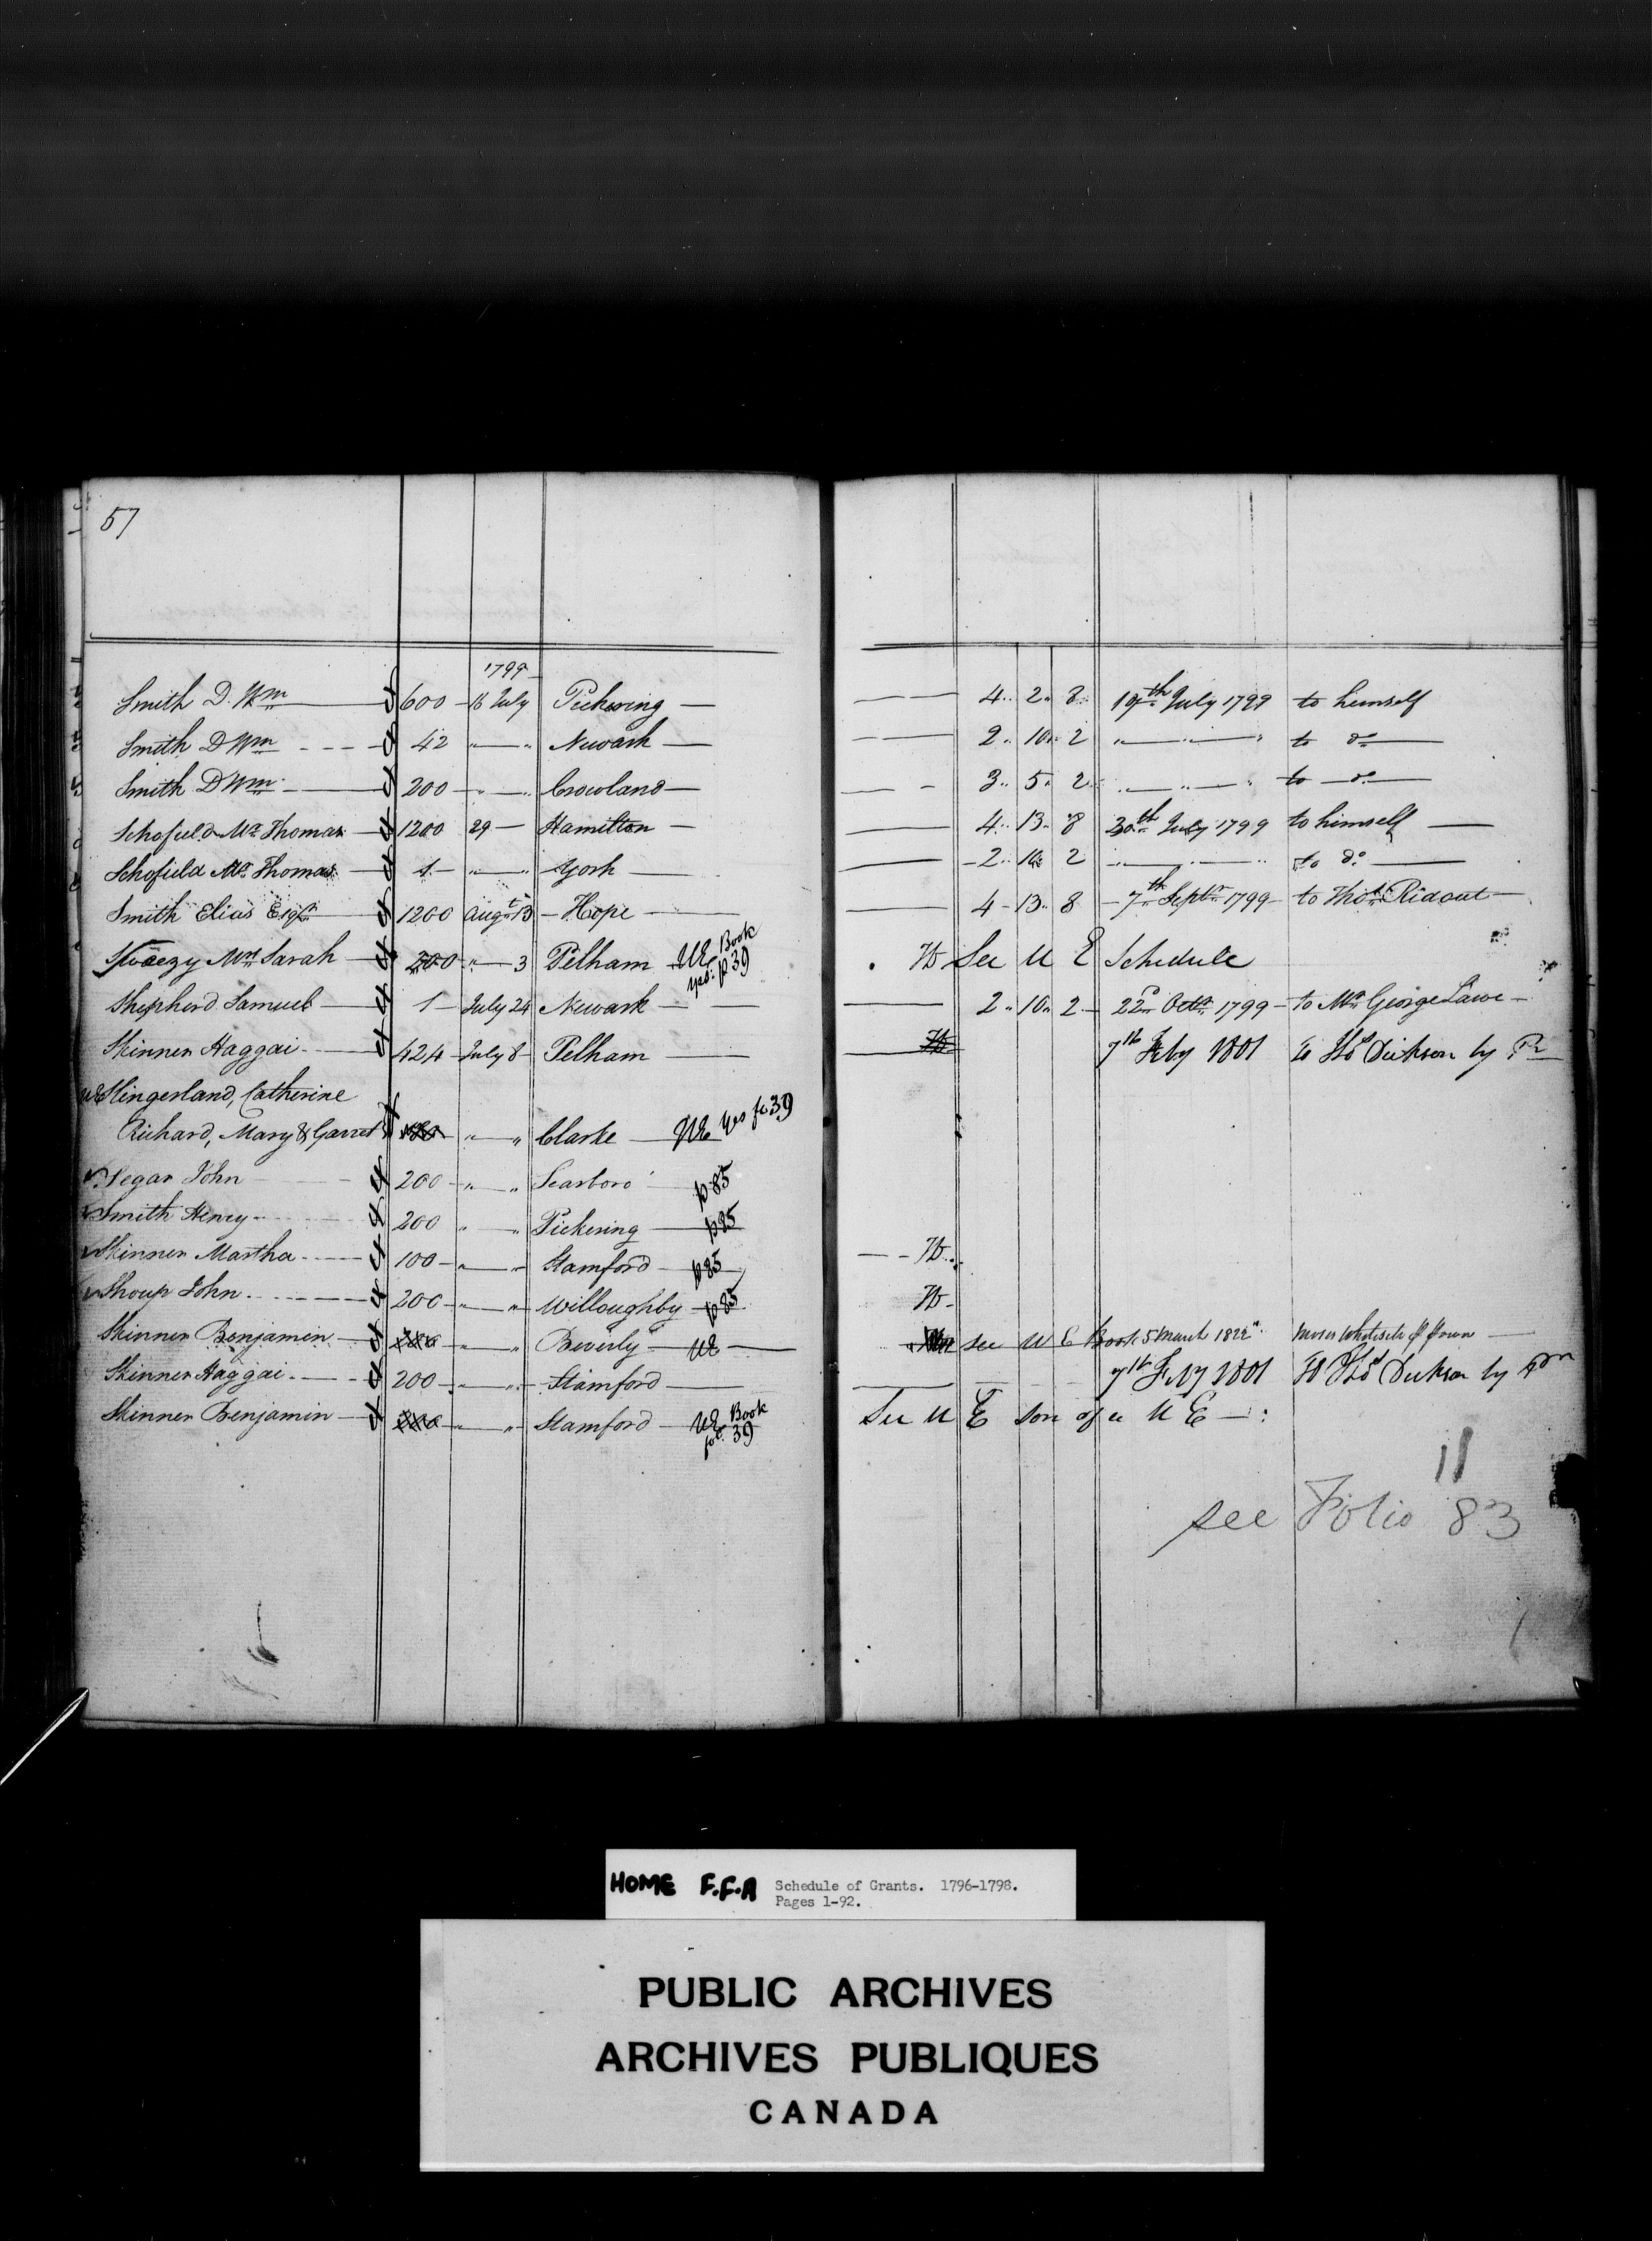 57
1799
Smith D. Wm 600 - 16 July Pickering — 4.. 2.. 8 19th July 1799 to himself
Smith D Wm 42 " " Newark — 2.. 10.. 2 " " to do
Smith D Wm 200 " " Crowland — 3.. 5.. 2 " " to do
Schofield Mr Thomas 1200 29 — Hamilton — 4.. 13.. 8 30th July 1799 to himself
Schofield Mr Thomas 1 " " York — 2.. 10.. 2 " " to do
Smith Elias Esqr 1200 Augt 13 - Hope — 4 - 13.. 8 - 7th Septr 1799 - to Thos Ridout
Swaezy Mrs Sarah 200 " 3 Pelham UE Book yes: p 39 See U E Schedule
Shepherd Samuel 1 - July 24 Newark — 2.. 10.. 2 - 22d Octr 1799 - to Mr George Lawe
Skinner Haggai 424 - July 8 - Pelham — 7th Feby 1801 to Thos Dickson by
UE Slingerland, Catherine
Richard, Mary & Garret " " Clarke — UE yes fo 39
Segar John 200 " " Scarboro p 85
Smith Henry 200 " " Pickering — p 85
Skinner Martha 100 - " " Stamford - p 85
Shoup John 200 " " Willoughby - p 85
Skinner Benjamin " " Beverly - UE — see U E Book 5 March 1822
Skinner Haggai 200 " " Stamford — 7th Feby 1801 To Thos Dickson by
Skinner Benjamin " " Stamford - UE Book fo. 39 See U E son of a U E
11
see Folio 83
HOME F.F.A Schedule of Grants. 1796-1798.
Pages 1-92.
PUBLIC ARCHIVES
ARCHIVES PUBLIQUES
CANADA